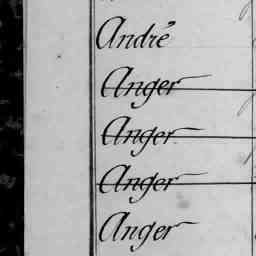 André
Anger
Anger
Anger
Anger